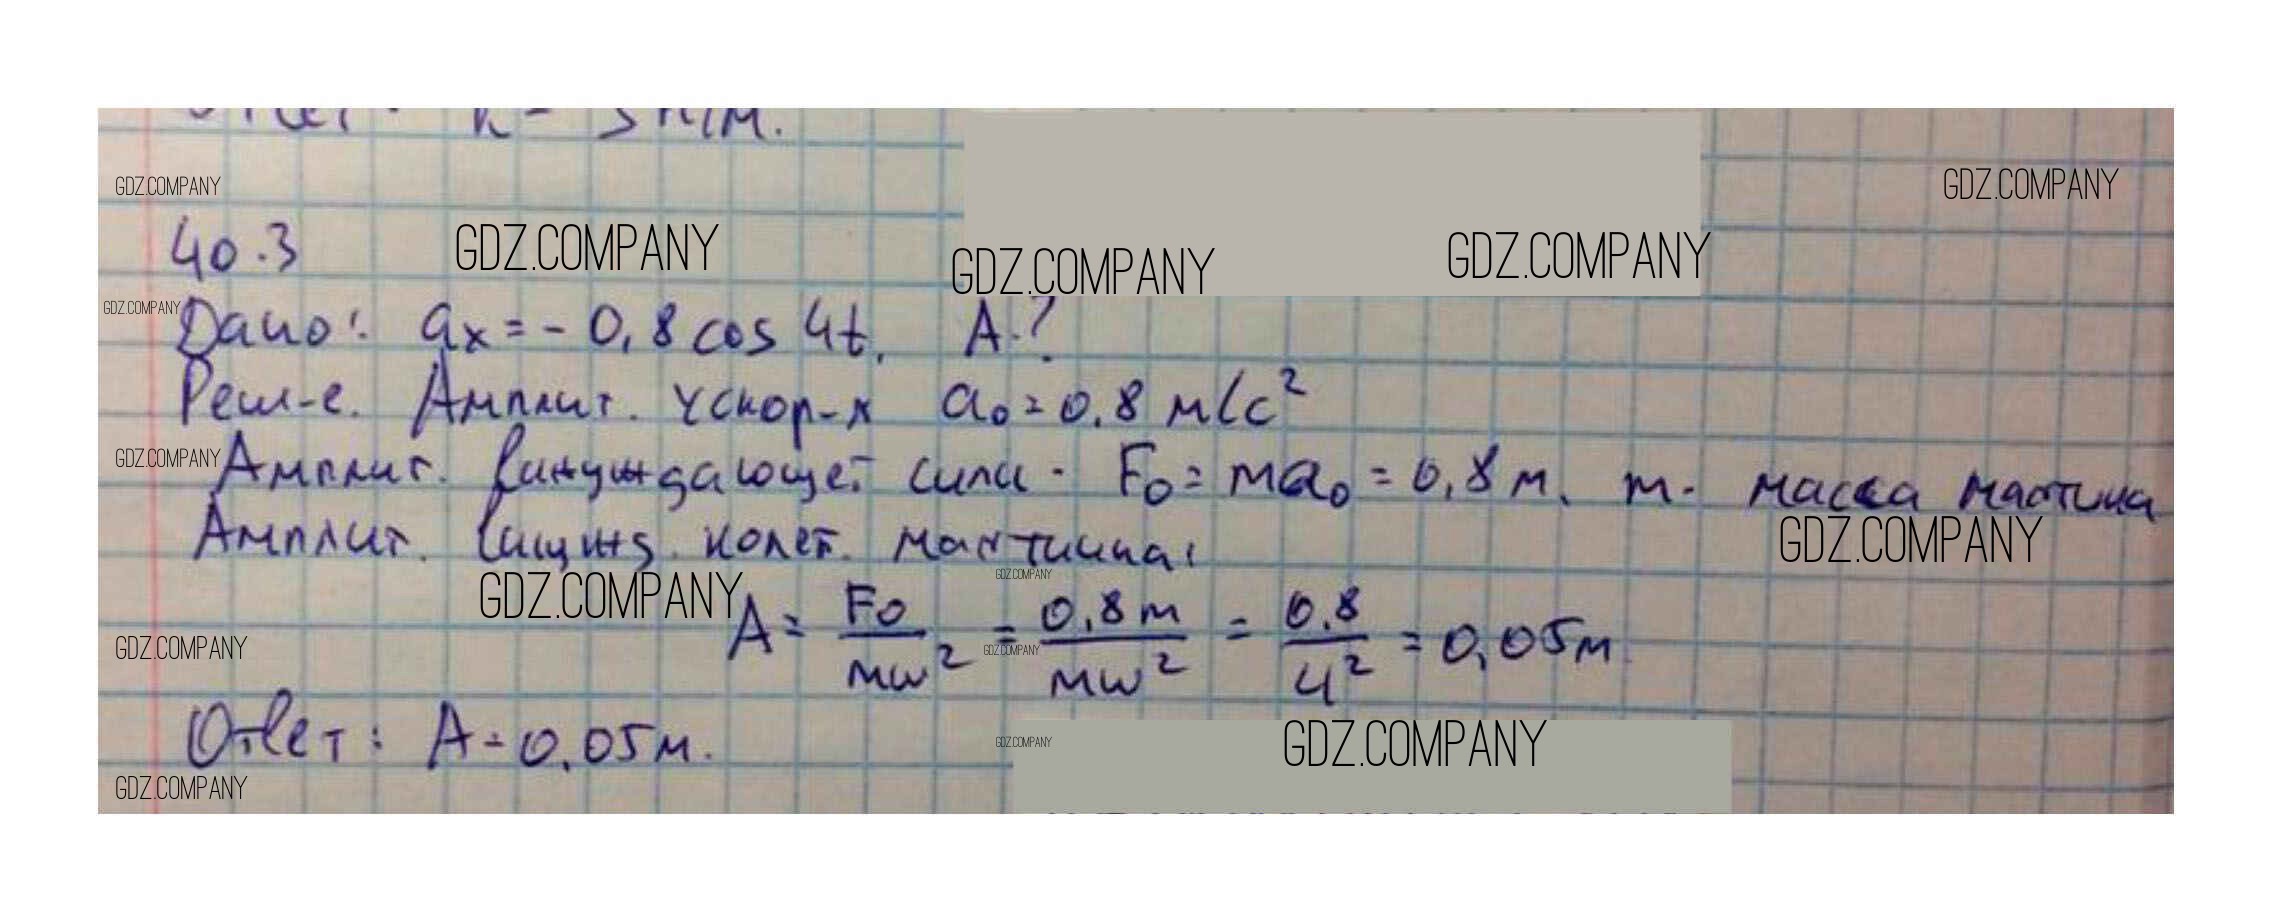 Ответ: k = 5 н/м.
GDZ.COMPANY
GDZ.COMPANY
40.3
GDZ.COMPANY
GDZ.COMPANY
GDZ.COMPANY
GDZ.COMPANY
Дано: ax = - 0,8 cos 4t. A-?
Реш-е. Амплит. ускор-я a₀ = 0,8 м/с²
GDZ.COMPANY
Амплит. вынуждающей силы - F₀ = ma₀ = 0,8 м. m - масса маятника
Амплит. вынужд. колеб. маятника:
GDZ.COMPANY
GDZ.COMPANY
GDZ.COMPANY
A = F₀/mw² = 0,8m/mw² = 0,8/4² = 0,05м
GDZ.COMPANY
GDZ.COMPANY
Ответ: A = 0,05м.
GDZ.COMPANY
GDZ.COMPANY
GDZ.COMPANY